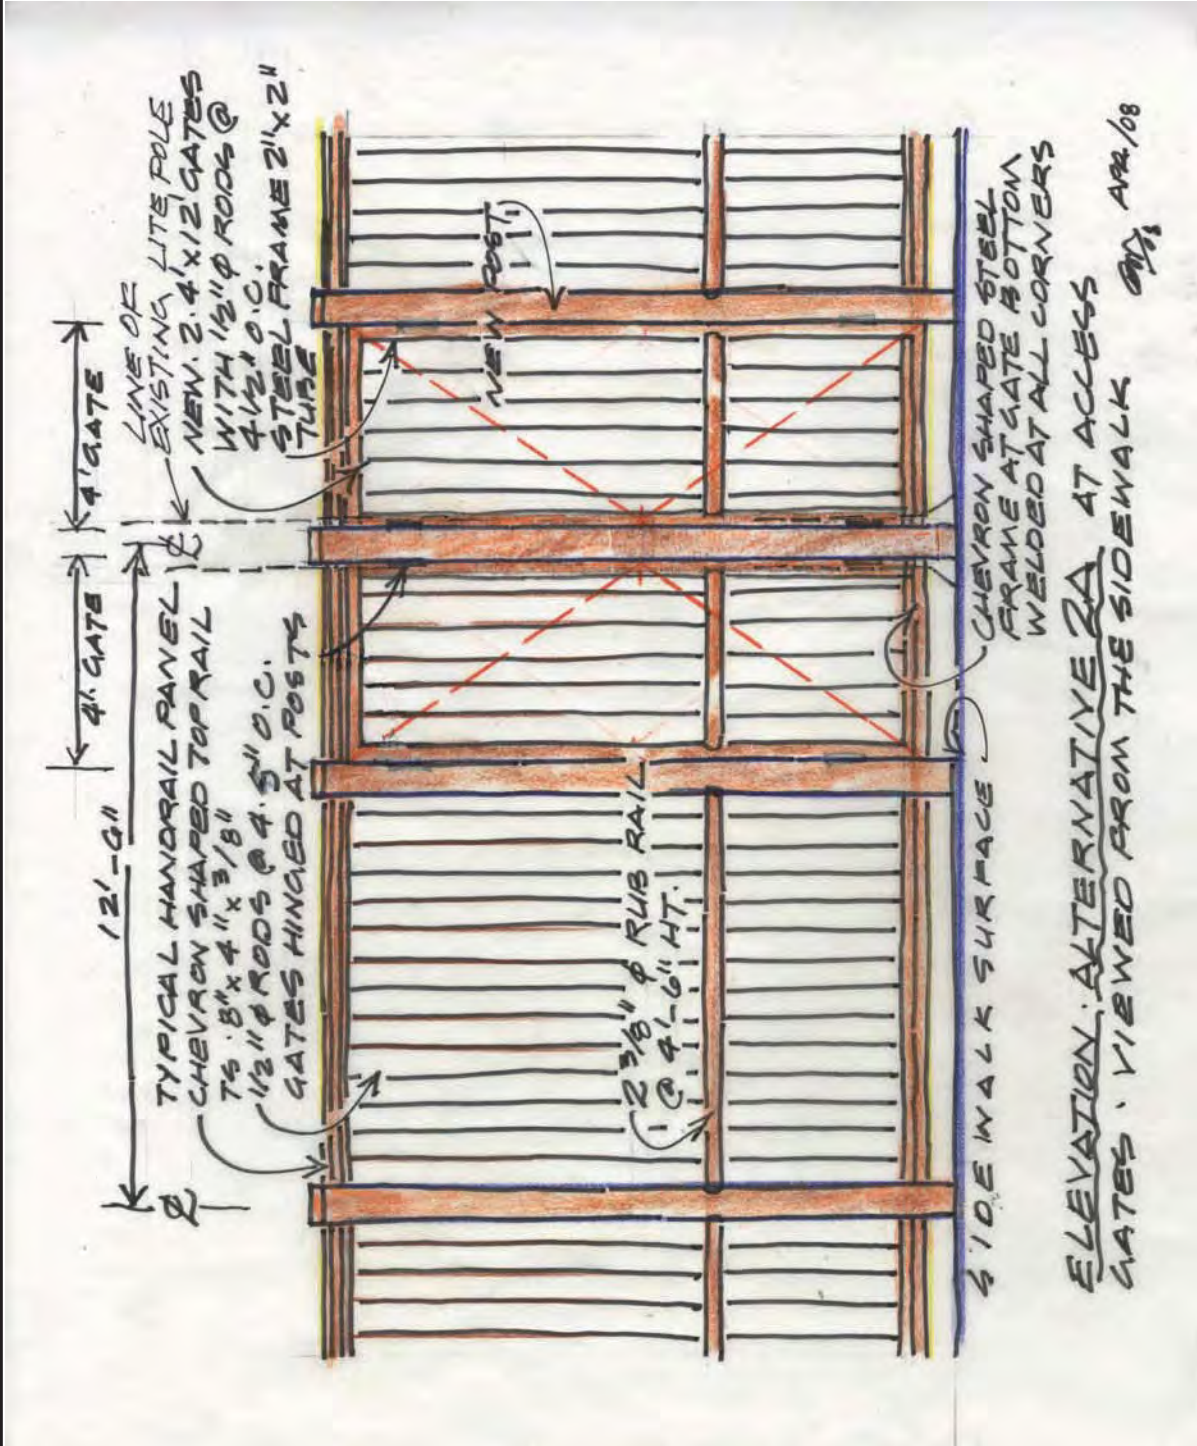 12'-6"
4'. GATE
4' GATE
TYPICAL HANDRAIL PANEL
CHEVRON SHAPED TOP RAIL
TS · 8" x 4" x 3/8"
1/2" ϕ RODS @ 4.5" O.C.
GATES HINGED AT POSTS
℄
℄
LINE OF
EXISTING LITE POLE
NEW · 2 · 4' x 12' GATES
WITH 1/2" ϕ RODS @
4 1/2" O.C.
STEEL FRAME 2" x 2"
TUBE
NEW POST
2 3/8" ϕ RUB RAIL
@ 4'-6" HT.
SIDEWALK SURFACE
CHEVRON SHAPED STEEL
FRAME AT GATE BOTTOM
WELDED AT ALL CORNERS
ELEVATION: ALTERNATIVE 2A AT ACCESS
GATES · VIEWED FROM THE SIDEWALK
APR/08